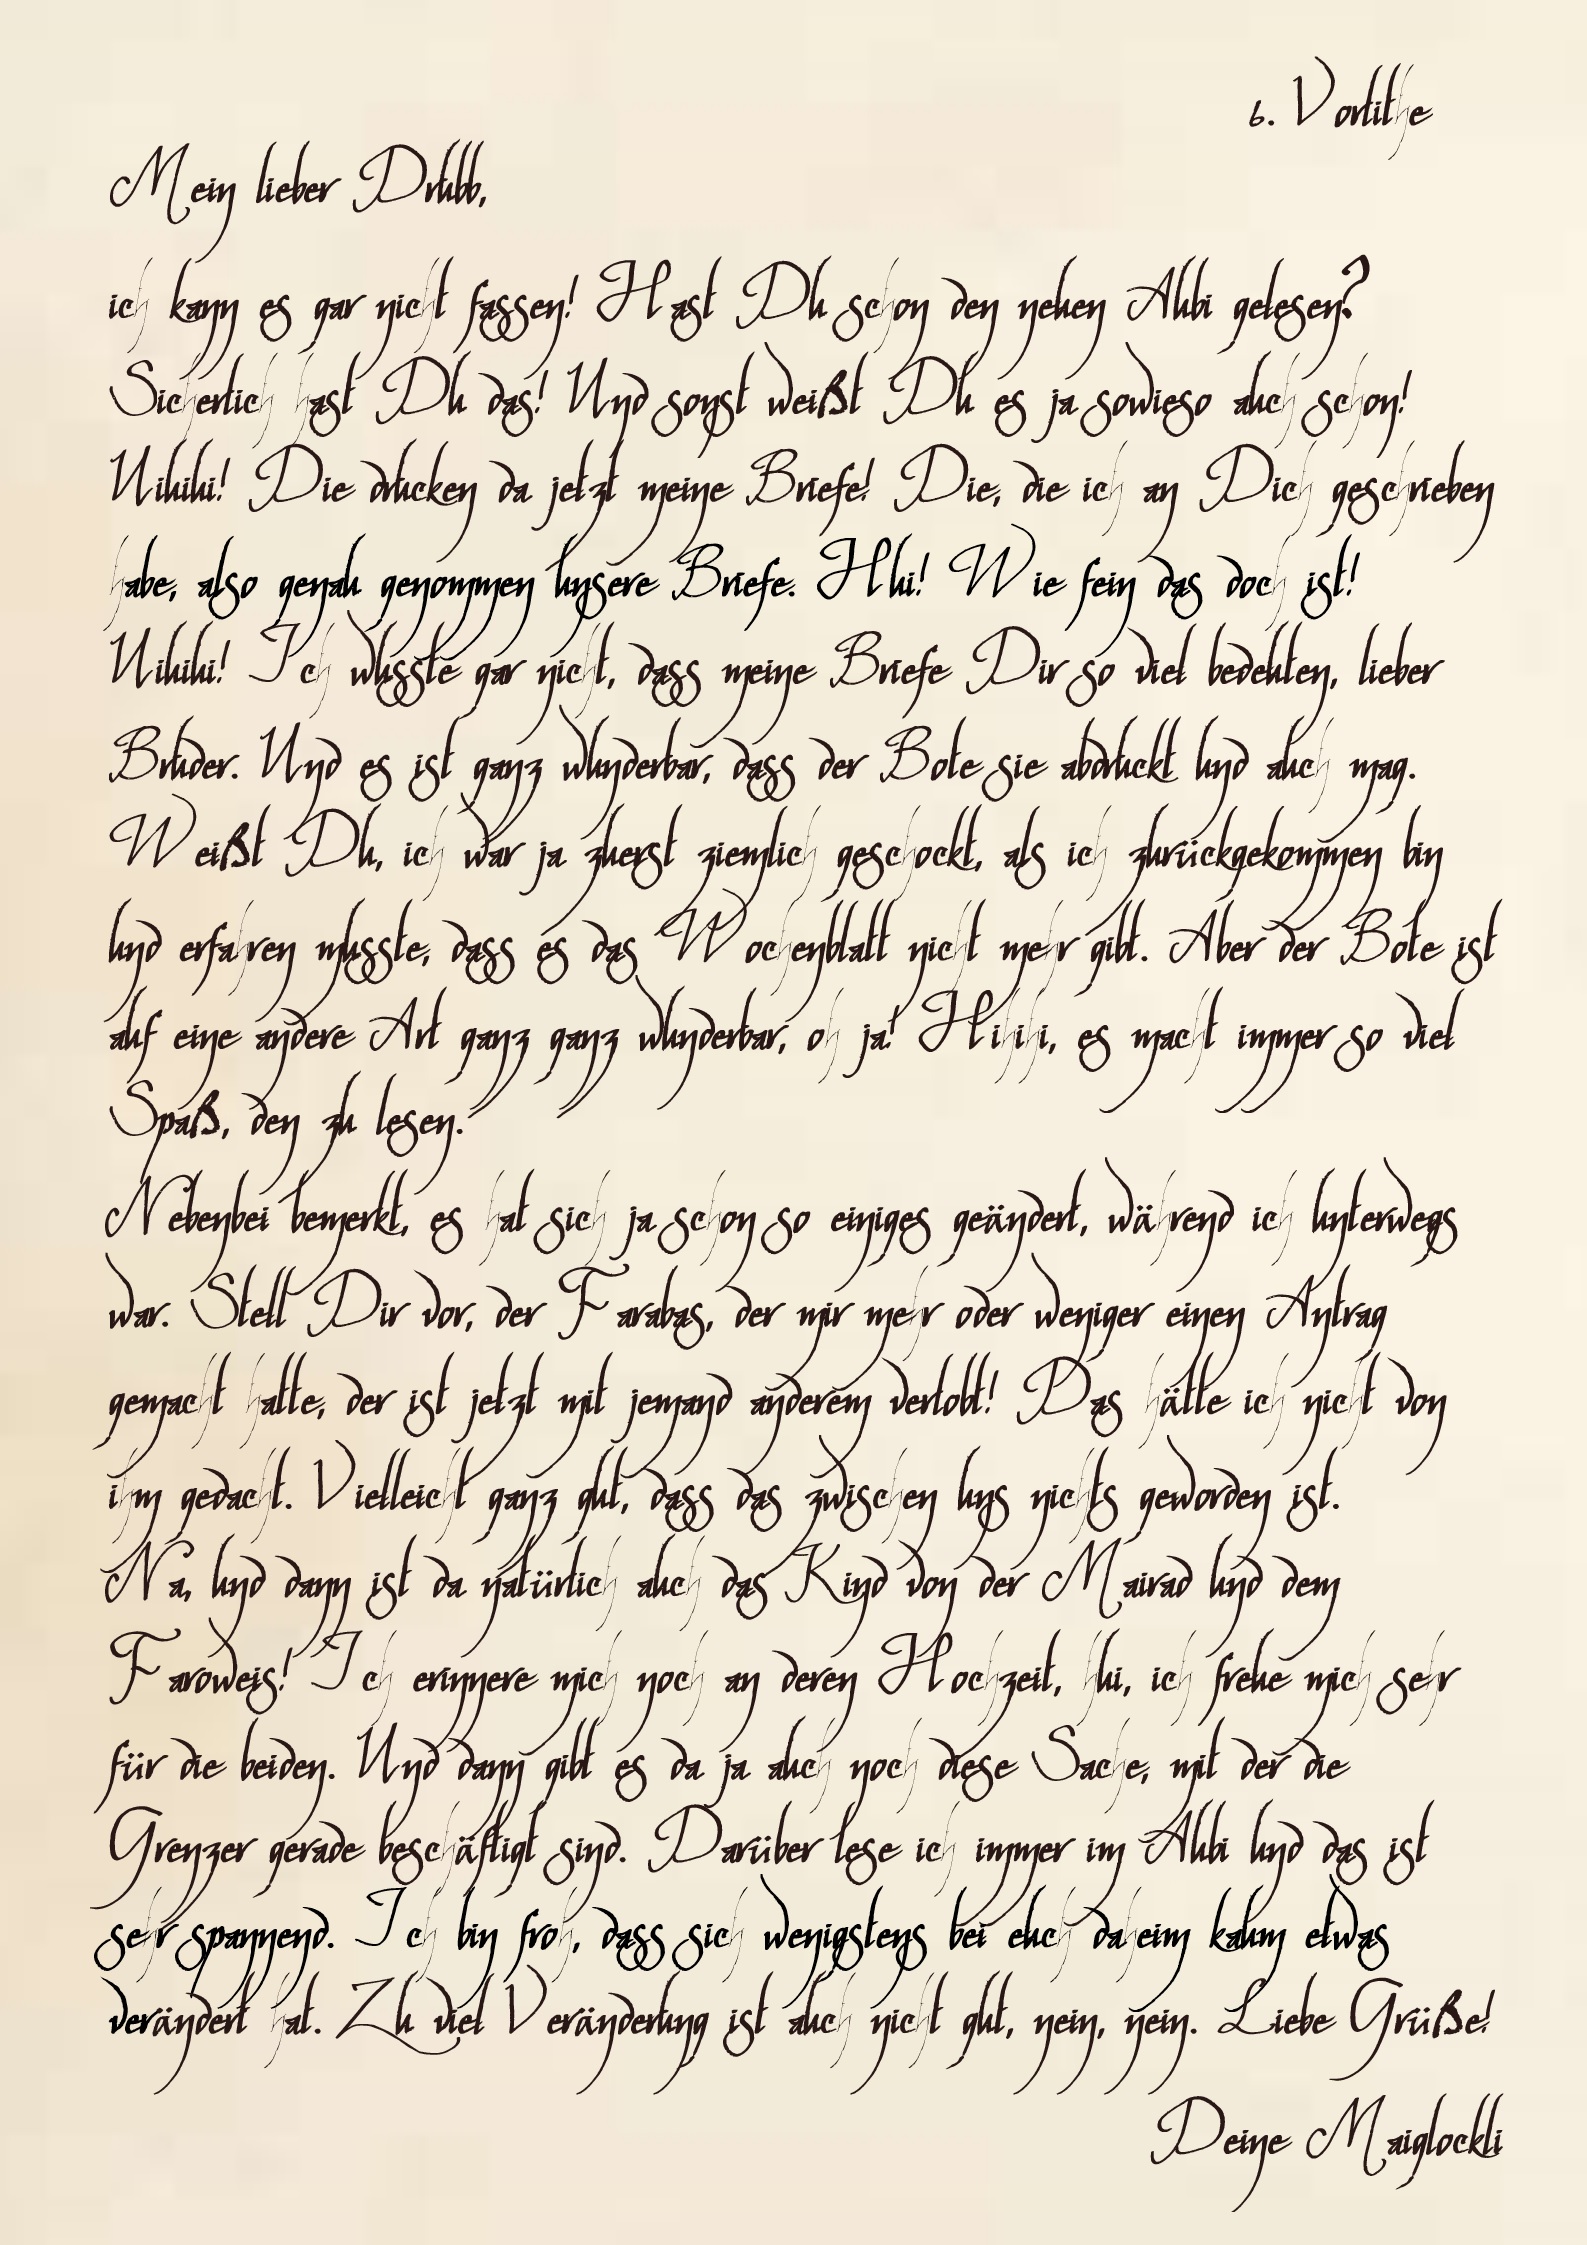 6. Vorlithe
Mein lieber Drubb,
ich kann es gar nicht fassen! Hast Du schon den neuen Aubi gelesen?
Sicherlich hast Du das! Und sonst weißt Du es ja sowieso auch schon!
Uiuiui! Die drucken da jetzt meine Briefe! Die, die ich an Dich geschrieben
habe, also genau genommen unsere Briefe. Hui! Wie fein das doch ist!
Uiuiui! Ich wusste gar nicht, dass meine Briefe Dir so viel bedeuten, lieber
Bruder. Und es ist ganz wunderbar, dass der Bote sie abdruckt und auch mag.
Weißt Du, ich war ja zuerst ziemlich geschockt, als ich zurückgekommen bin
und erfahren musste, dass es das Wochenblatt nicht mehr gibt. Aber der Bote ist
auf eine andere Art ganz ganz wunderbar, oh ja! Hihihi, es macht immer so viel
Spaß, den zu lesen.
Nebenbei bemerkt, es hat sich ja schon so einiges geändert, während ich unterwegs
war. Stell Dir vor, der Farabas, der mir mehr oder weniger einen Antrag
gemacht hatte, der ist jetzt mit jemand anderem verlobt! Das hätte ich nicht von
ihm gedacht. Vielleicht ganz gut, dass das zwischen uns nichts geworden ist.
Na, und dann ist da natürlich auch das Kind von der Mairad und dem
Faroweis! Ich erinnere mich noch an deren Hochzeit, hui, ich freue mich sehr
für die beiden. Und dann gibt es da ja auch noch diese Sache, mit der die
Grenzer gerade beschäftigt sind. Darüber lese ich immer im Aubi und das ist
sehr spannend. Ich bin froh, dass sich wenigstens bei euch daheim kaum etwas
verändert hat. Zu viel Veränderung ist auch nicht gut, nein, nein. Liebe Grüße!
Deine Maiglockli